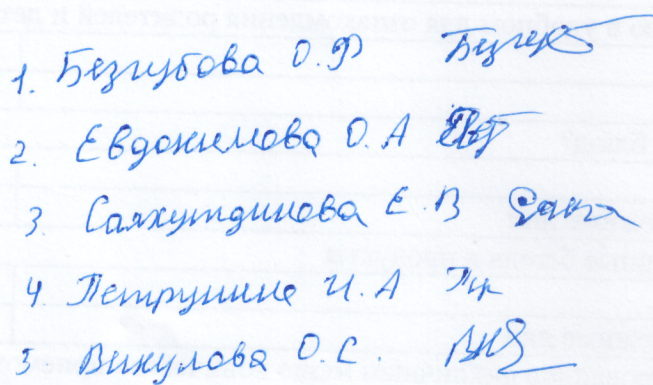 1. Безгубова О.Ф
2. Евдокимова О.А
3. Салхутдинова Е.В
4. Петрунина И.А
5 Викулова О.С.